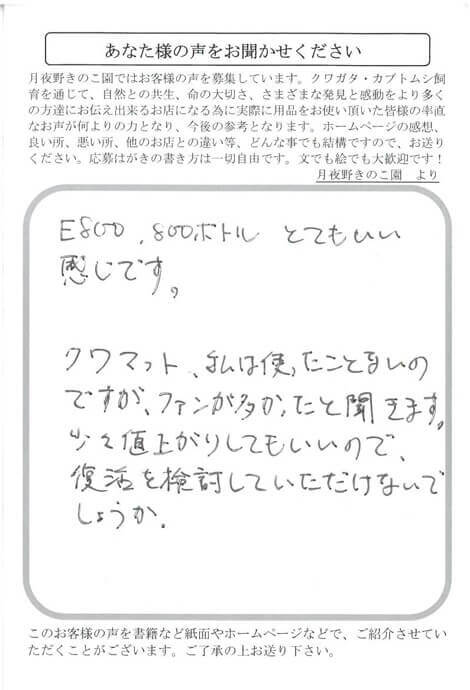 あなた様の声をお聞かせください
月夜野きのこ園ではお客様の声を募集しています。クワガタ・カブトムシ飼
育を通じて、自然との共生、命の大切さ、さまざまな発見と感動をより多く
の方達にお伝え出来るお店になる為に実際に用品をお使い頂いた皆様の率直
なお声が何よりの力となり、今後の参考となります。ホームページの感想、
良い所、悪い所、他のお店との違い等、どんな事でも結構ですので、お送り
ください。応募はがきの書き方は一切自由です。文でも絵でも大歓迎です！
月夜野きのこ園　より
E800、800ボトル とてもいい
感じです。
クワマット、私は使ったことないの
ですが、ファンが多かったと聞きます。
少々値上がりしてもいいので、
復活を検討していただけないで
しょうか。
このお客様の声を書籍など紙面やホームページなどで、ご紹介させてい
ただくことがございます。ご了承の上お送り下さい。